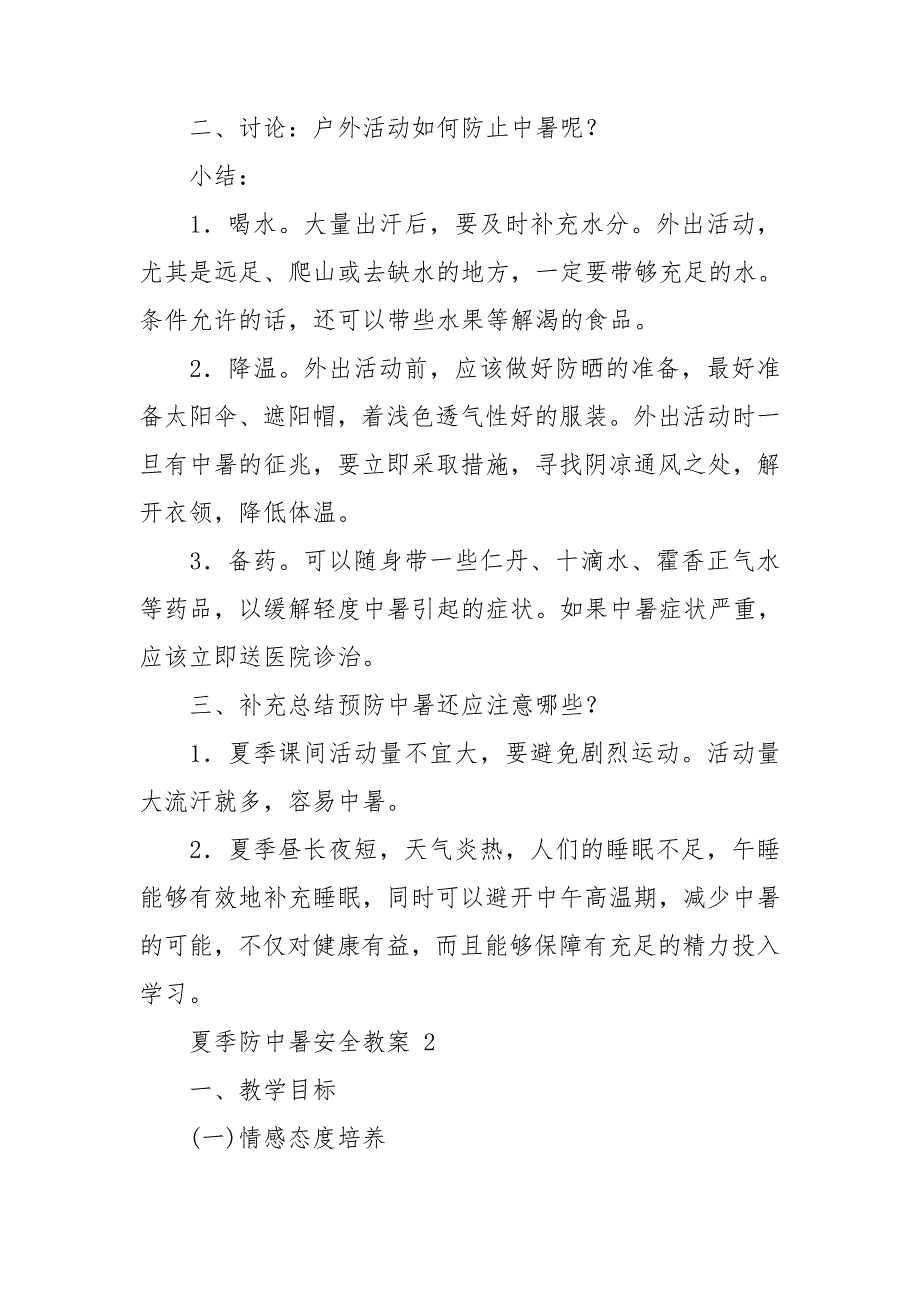 二、讨论：户外活动如何防止中暑呢？
小结：
1．喝水。大量出汗后，要及时补充水分。外出活动，
尤其是远足、爬山或去缺水的地方，一定要带够充足的水。
条件允许的话，还可以带些水果等解渴的食品。
2．降温。外出活动前，应该做好防晒的准备，最好准
备太阳伞、遮阳帽，着浅色透气性好的服装。外出活动时一
旦有中暑的征兆，要立即采取措施，寻找阴凉通风之处，解
开衣领，降低体温。
3．备药。可以随身带一些仁丹、十滴水、霍香正气水
等药品，以缓解轻度中暑引起的症状。如果中暑症状严重，
应该立即送医院诊治。
三、补充总结预防中暑还应注意哪些？
1．夏季课间活动量不宜大，要避免剧烈运动。活动量
大流汗就多，容易中暑。
2．夏季昼长夜短，天气炎热，人们的睡眠不足，午睡
能够有效地补充睡眠，同时可以避开中午高温期，减少中暑
的可能，不仅对健康有益，而且能够保障有充足的精力投入
学习。
夏季防中暑安全教案 2
一、教学目标
(一)情感态度培养